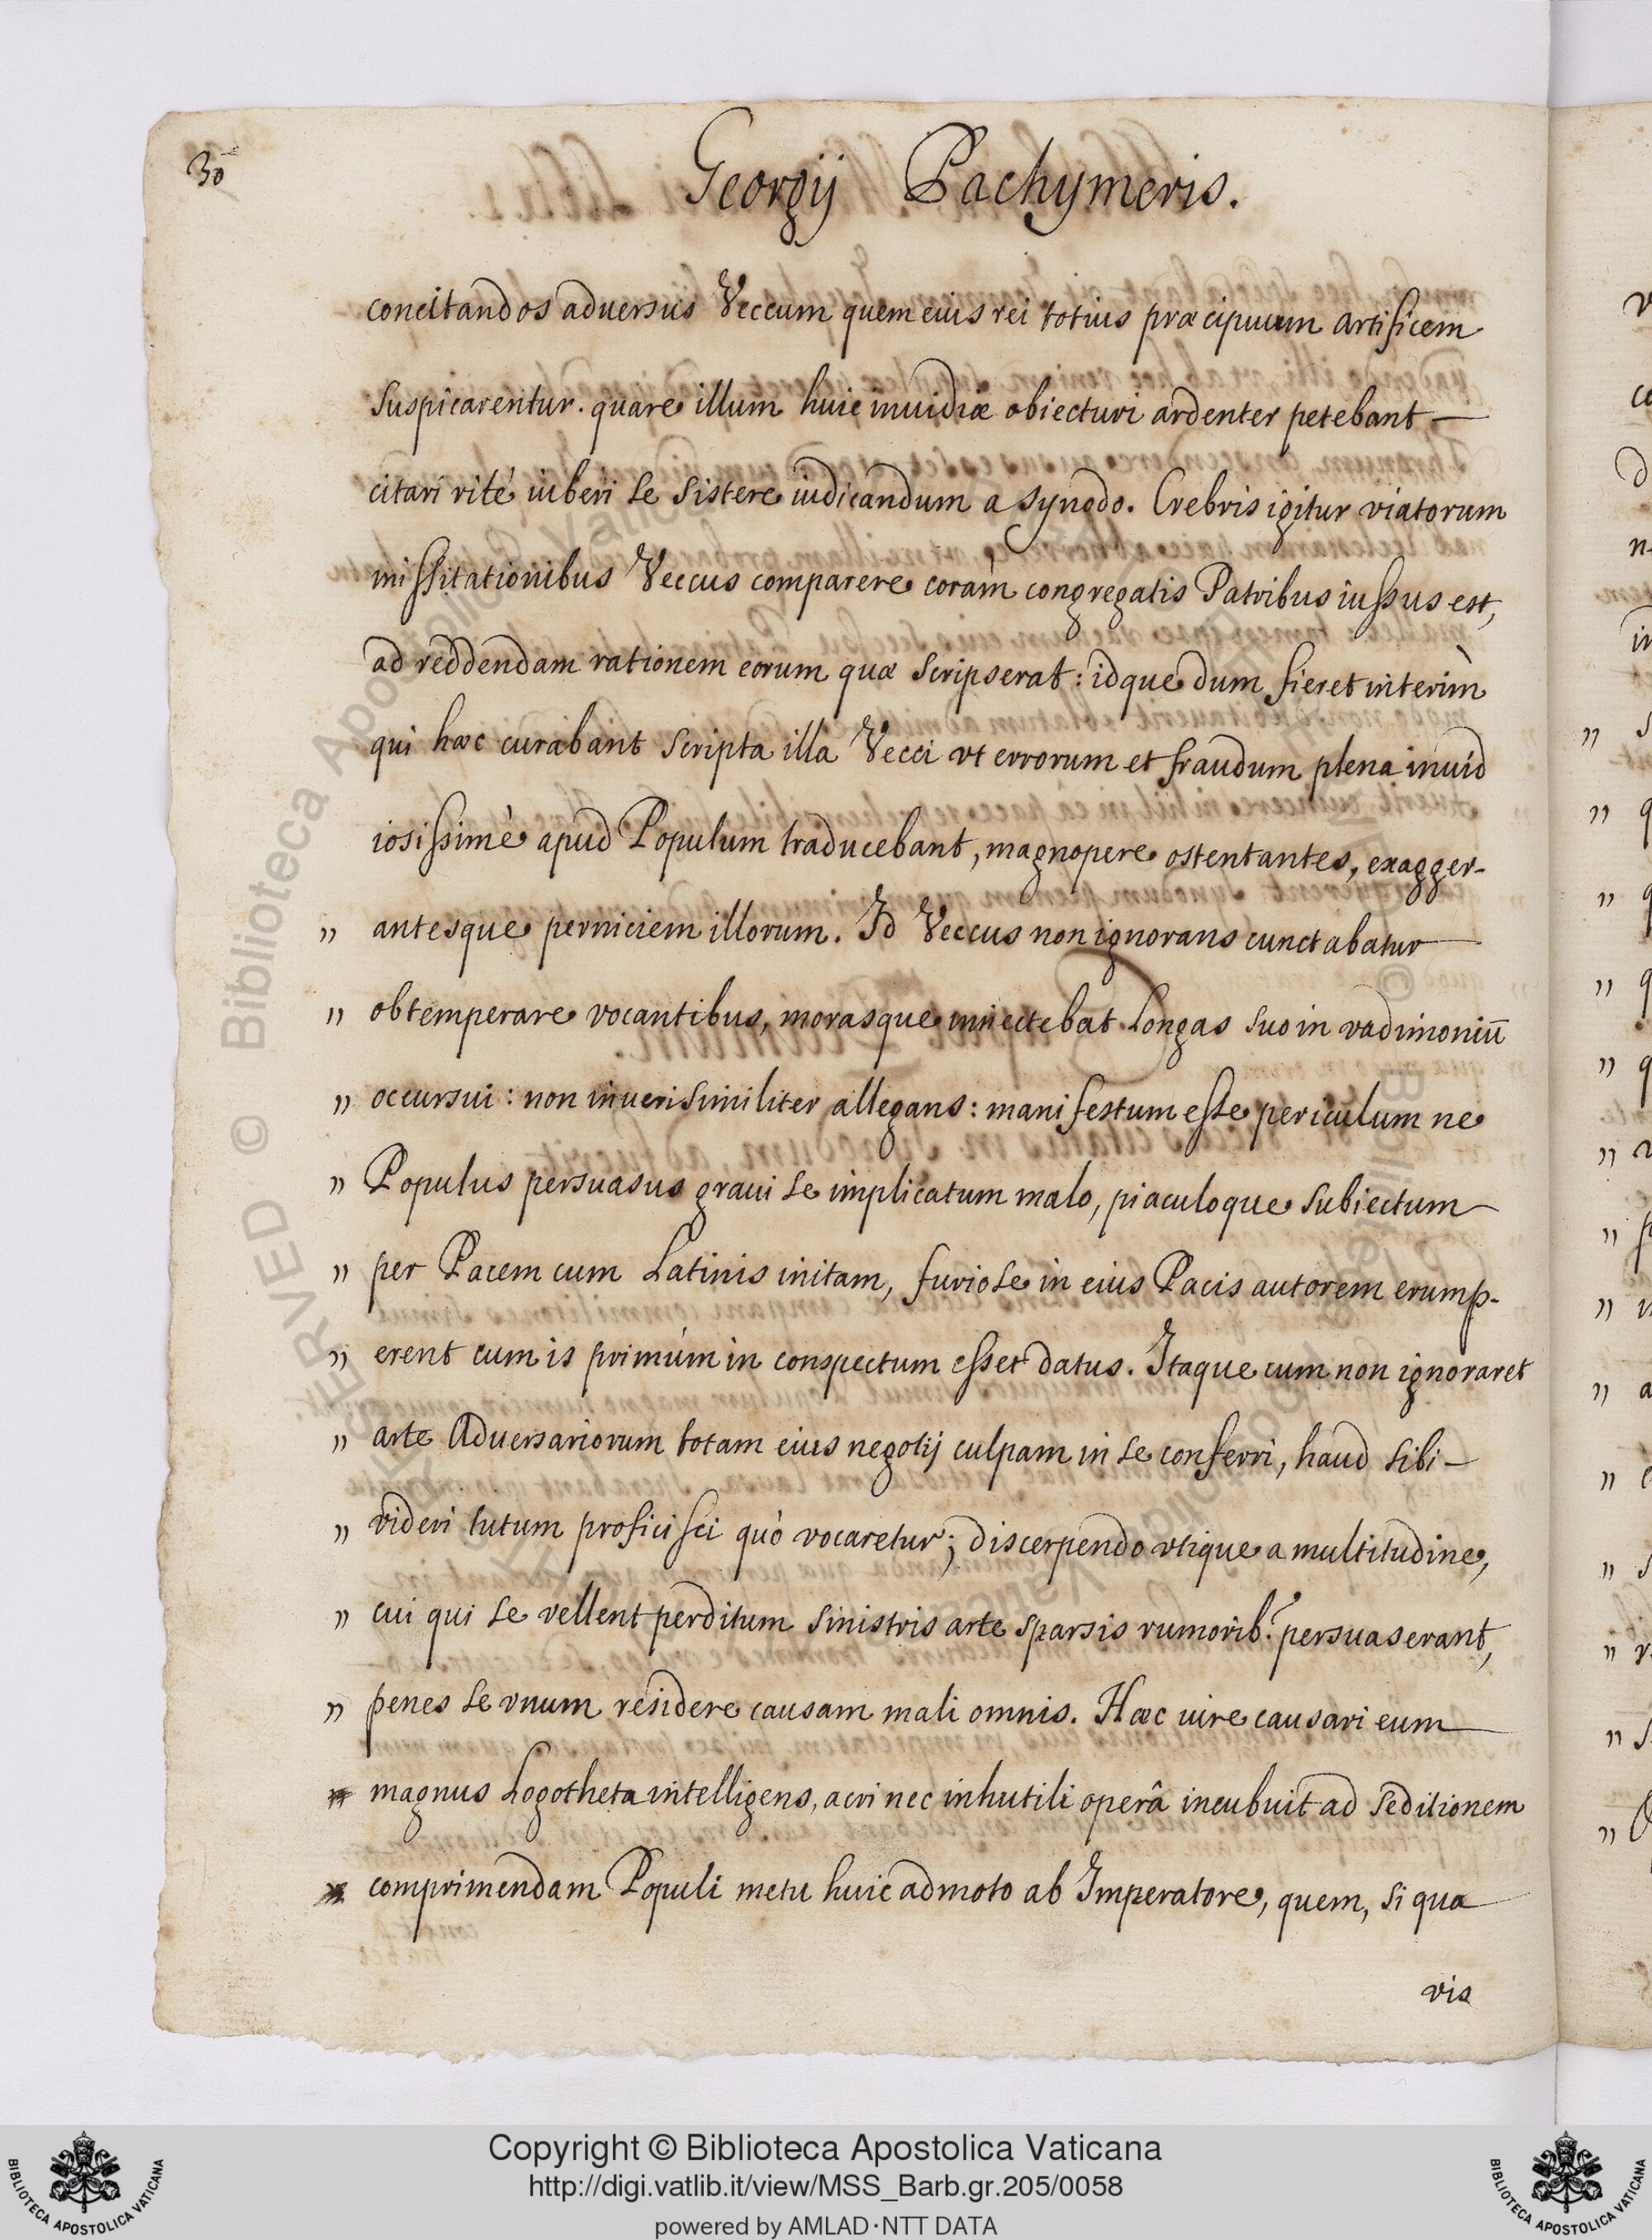 30
Georgij Pachymeris.
concitandos aduersus Veccum quem eius rei totius præcipuum artificem
suspicarentur. quare illum huic inuidiæ obiecturi ardenter petebant
citari rité iuberi se sistere iudicandum a synodo. Crebris igitur viatorum
missitationibus Veccus comparere coràm congregatis Patribus iussus est,
ad reddendam rationem eorum quæ scripserat: idque dum fieret interìm
qui hæc curabant scripta illa Vecci vt errorum et fraudum plena inuid
iosissimè apud Populum traducebant, magnopere ostentantes, exagger-
" antesque perniciem illorum. Id Veccus non ignorans cunctabatur
" obtemperare vocantibus, morasque innectebat longas suo in vadimoniū
" occursui: non inuerisimiliter allegans: manifestum esse periculum ne
" Populus persuasus graui se implicatum malo, piaculoque subiectum
" per Pacem cum Latinis initam, furiose in eius Pacis autorem erump-
" erent cum is primùm in conspectum esset datus. Itaque cum non ignoraret
" arte Aduersariorum totam eius negotij culpam in se conferri, haud sibi
" videri tutum proficisci quò vocaretur; discerpendo vtique a multitudine,
" cui qui se vellent perditum sinistris arte sparsis rumorib. persuaserant,
" penes se vnum residere causam mali omnis. Hæc iure causari eum
magnus Logotheta intelligens, acri nec inhutili operâ incubuit ad seditionem
comprimendam Populi metu huic admoto ab Imperatore, quem, si qua
vis
Copyright © Biblioteca Apostolica Vaticana
http://digi.vatlib.it/view/MSS_Barb.gr.205/0058
powered by AMLAD·NTT DATA